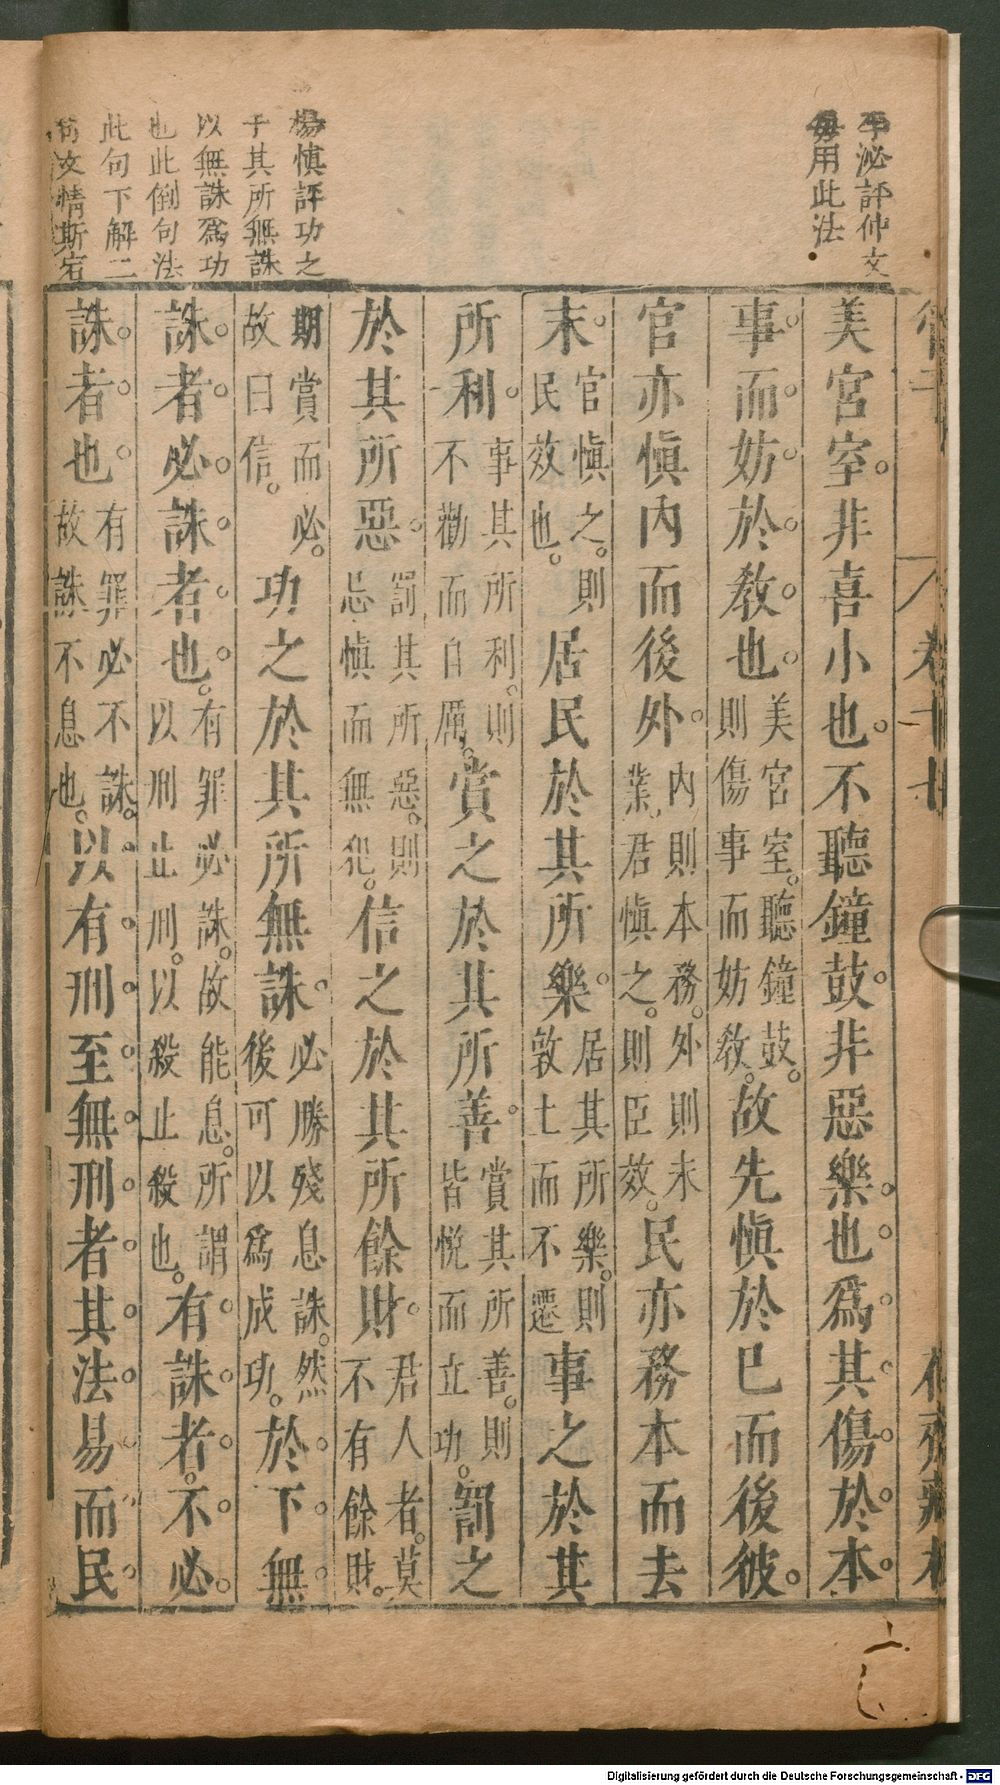 泌評仲文
每用此法
美宮室。非喜小也。不聽鐘鼓。非惡樂也。爲其傷於本。
事。而妨於教也。美宮室。聽鐘鼓。則傷事而妨教。故先慎於已而後彼。
官亦慎內而後外。內則本務。外則末業。君慎之。則臣效。民亦務本而去
末。官慎之。則民效也。居民於其所樂。居其所樂。則敦土而不遷事之於其
所利。事其所利。則不勸而自厲。賞之於其所善。賞其所善。則皆悅而立功。罰之
於其所惡。罰其所惡。則忌慎而無犯。信之於其所餘財。君人者。莫不有餘財。
期賞而必。故曰信。功之於其所無誅。必勝殘息誅。然後可以爲成功。於下無
誅者。必誅者也。有罪必誅。故能息。所謂以刑止刑。以殺止殺也。有誅者。不必
誅者也。有罪必不誅。故誅不息也。以有刑至無刑者。其法易而民
楊慎評功之
于其所無誅
以無誅爲功
也此倒句法
此句下解二
句文情斯宕
卷十七
Digitalisierung gefördert durch die Deutsche Forschungsgemeinschaft - DFG